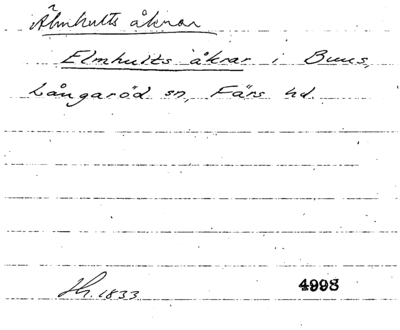 Älmhults åkrar
Elmhults åkrar i Buus,
Långaröd sn, Färs hd.
Jh. 1833 4998